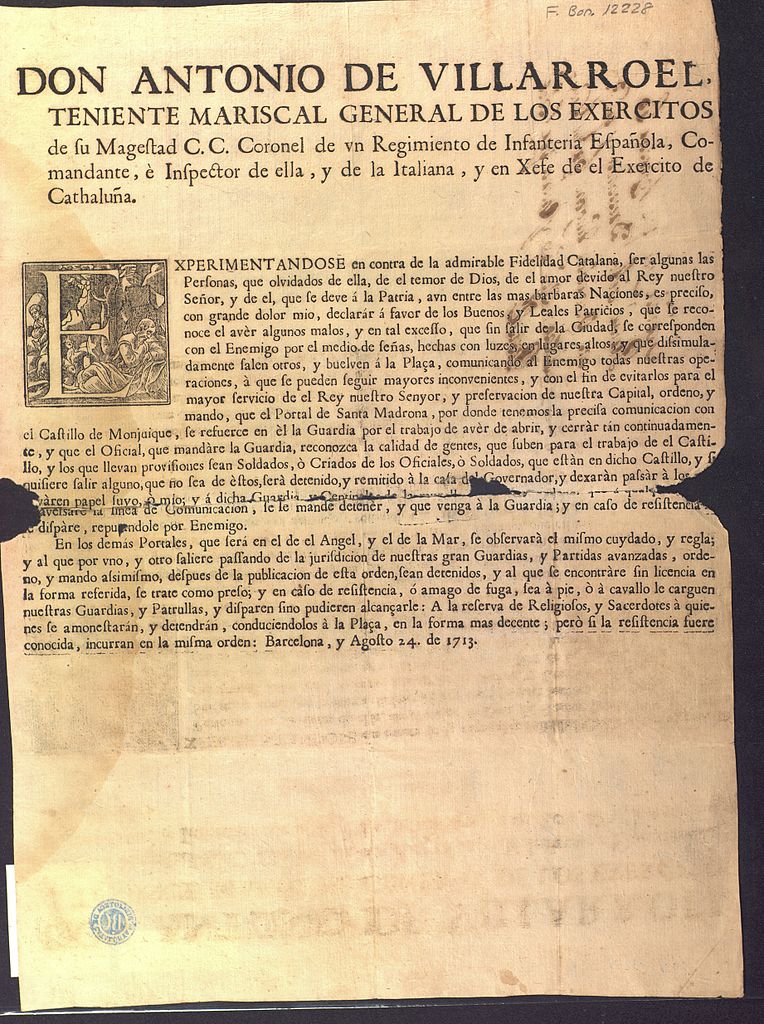 F. Bon. 12228
DON ANTONIO DE VILLARROEL,
TENIENTE MARISCAL GENERAL DE LOS EXERCITOS
de ſu Mageſtad C. C. Coronel de vn Regimiento de Infanteria Eſpañola, Co-
mandante, è Inſpector de ella, y de la Italiana, y en Xefe de el Exercito de
Cathaluña.
EXPERIMENTANDOSE en contra de la admirable Fidelidad Catalana, ſer algunas las
Perſonas, que olvidados de ella, de el temor de Dios, de el amor devido al Rey nueſtro
Señor, y de el, que ſe deve á la Patria, avn entre las mas barbaras Naciones, es preciſo,
con grande dolor mio, declarár á favor de los Buenos, y Leales Patricios, que ſe reco-
noce el avèr algunos malos, y en tal exceſſo, que ſin ſalir de la Ciudad, ſe correſponden
con el Enemigo por el medio de ſeñas, hechas con luzes, en lugares altos, y que diſsimula-
damente ſalen otros, y buelven á la Plaça, comunicando al Enemigo todas nueſtras ope-
raciones, à que ſe pueden ſeguir mayores inconvenientes, y con el fin de evitarlos para el
mayor ſervicio de el Rey nueſtro Senyor, y preſervacion de nueſtra Capital, ordeno, y
mando, que el Portal de Santa Madrona, por donde tenemos la preciſa comunicacion con
el Caſtillo de Monjuique, ſe refuerce en èl la Guardia por el trabajo de avèr de abrir, y cerràr tàn continuadamen-
te, y que el Oficial, que mandàre la Guardia, reconozca la calidad de gentes, que ſuben para el trabajo de el Caſti-
llo, y los que llevan proviſiones ſean Soldados, ò Criados de los Oficiales, ò Soldados, que eſtàn en dicho Caſtillo, y ſi
quiſiere ſalir alguno, que no ſea de èſtos, ſerà detenido, y remitido à la caſa del Governador, y dexaràn paſsàr à los
vàren papel ſuyo, ò mio; y á dicha Guardia, y
aveſsare la linea de Comunicacion, ſe le mande detener, y que venga à la Guardia; y en caſo de reſiſtencia
diſpàre, reputandole por Enemigo.
En los demàs Portales, que ſerá en el de el Angel, y el de la Mar, ſe obſervarà el miſmo cuydado, y regla;
y al que por vno, y otro ſaliere paſſando de la juriſdicion de nueſtras gran Guardias, y Partidas avanzadas, orde-
no, y mando aſsimiſmo, deſpues de la publicacion de eſta orden, ſean detenidos, y al que ſe encontràre ſin licencia en
la forma referida, ſe trate como preſo; y en càſo de reſiſtencia, ó amago de fuga, ſea à pie, ò à cavallo le carguen
nueſtras Guardias, y Patrullas, y diſparen ſino pudieren alcançarle: A la reſerva de Religioſos, y Sacerdotes à quie-
nes ſe amoneſtarán, y detendrán, conduciendolos à la Plaça, en la forma mas decente; però ſi la reſiſtencia fuere
conocida, incurran en la miſma orden: Barcelona, y Agoſto 24. de 1713.